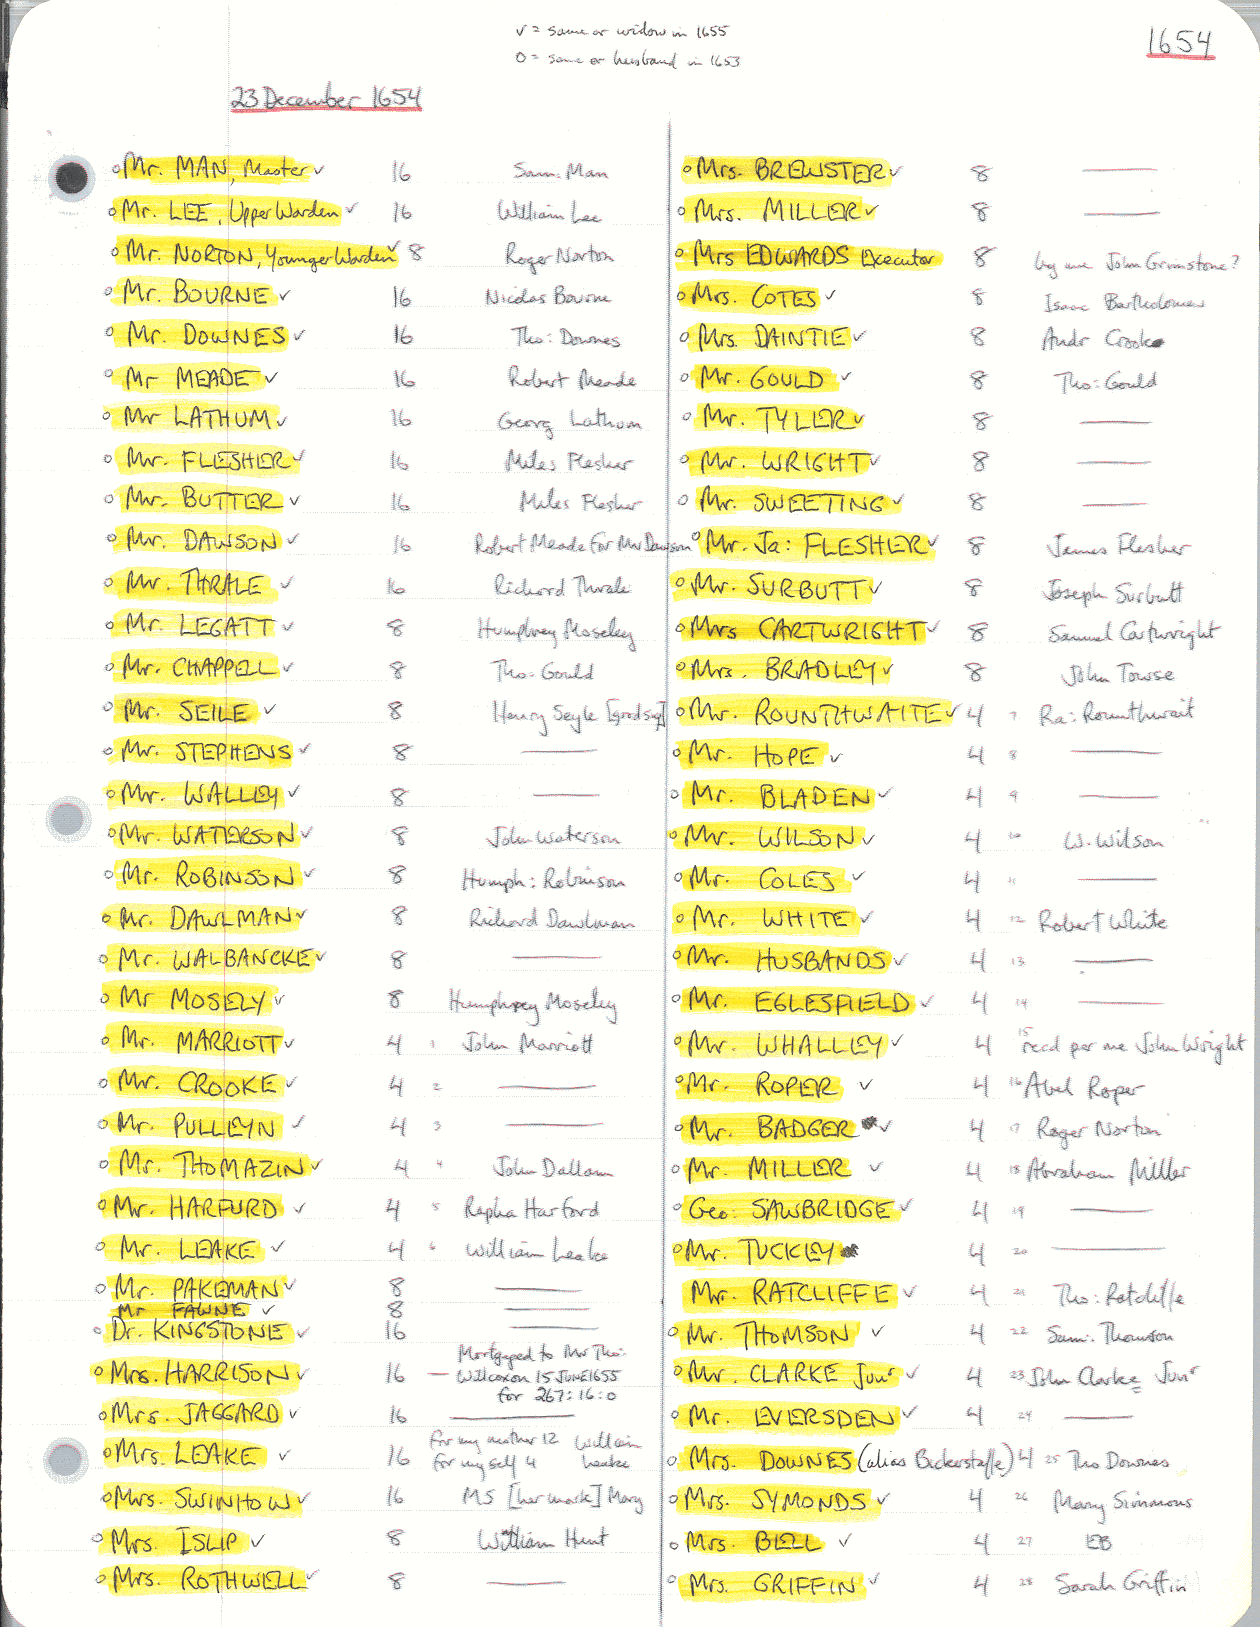 v = same or widow in 1655
o = same or husband in 1653
1654
23 December 1654
o Mr. MAN, Master ✓ 16 Sam. Man
o Mr. LEE, Upper Warden ✓ 16 William Lee
o Mr. NORTON, Younger Warden ✓ 8 Roger Norton
o Mr. BOURNE ✓ 16 Nicolas Bourne
o Mr. DOWNES ✓ 16 Tho: Downes
o Mr MEADE ✓ 16 Robert Meade
o Mr LATHUM ✓ 16 Georg Lathum
o Mr. FLESHER ✓ 16 Miles Flesher
o Mr. BUTTER ✓ 16 Miles Flesher
o Mr. DAWSON ✓ 16 Robert Meade for Mr Dawson
o Mr. THRALE ✓ 16 Richard Thrale
o Mr. LEGATT ✓ 8 Humphrey Moseley
o Mr. CHAPPELL ✓ 8 Tho: Gould
o Mr. SEILE ✓ 8 Henry Seyle [good sig]
o Mr. STEPHENS ✓ 8 —
o Mr. WALLEY ✓ 8 —
o Mr. WATERSON ✓ 8 John Waterson
o Mr. ROBINSON ✓ 8 Humph: Robinson
o Mr. DAWLMAN ✓ 8 Richard Dawlman
o Mr. WALBANCKE ✓ 8 —
o Mr MOSELY ✓ 8 Humphrey Moseley
o Mr. MARRIOTT ✓ 4 1 John Marriott
o Mr. CROOKE ✓ 4 2 —
o Mr. PULLEYN ✓ 4 3 —
o Mr. THOMAZIN ✓ 4 4 John Dallam
o Mr. HARFURD ✓ 4 5 Rapha Harford
o Mr. LEAKE ✓ 4 6 William Leake
o Mr. PAKEMAN ✓ 8 —
Mr FAWNE ✓ 8 —
o Dr. KINGSTONE ✓ 16 —
o Mrs. HARRISON ✓ 16 — Mortgaged to Mr Tho:
Willcoxon 15 JUNE 1655
for 267:16:0
o Mrs. JAGGARD ✓ 16 —
o Mrs. LEAKE ✓ 16 for my mother 12 William
for my self 4 Leake
o Mrs. SWINHOW ✓ 16 MS [her mark] Mary
o Mrs. ISLIP ✓ 8 William Hunt
o Mrs. ROTHWELL ✓ 8 —
o Mrs. BREWSTER ✓ 8 —
o Mrs. MILLER ✓ 8 —
o Mrs EDWARDS Executor 8 by me John Grimstone?
o Mrs. COTES ✓ 8 Isaac Bartholomew
o Mrs. DAINTIE ✓ 8 Andr Crooke
o Mr. GOULD ✓ 8 Tho: Gould
o Mr. TYLLER ✓ 8 —
o Mr. WRIGHT ✓ 8 —
o Mr. SWEETING ✓ 8 —
o Mr. Ja: FLESHER ✓ 8 James Flesher
o Mr. SURBUTT ✓ 8 Joseph Surbutt
o Mrs CARTWRIGHT ✓ 8 Samuel Cartwright
o Mrs. BRADLEY ✓ 8 John Towse
o Mr. ROUNTHWAITE ✓ 4 7 Ra: Rounthwait
o Mr. HOPE ✓ 4 8 —
o Mr. BLADEN ✓ 4 9 —
o Mr. WILSON ✓ 4 10 W. Wilson
o Mr. COLES ✓ 4 11 —
o Mr. WHITE ✓ 4 12 Robert White
o Mr. HUSBANDS ✓ 4 13 —
o Mr. EGLESFIELD ✓ 4 14 —
o Mr. WHALLEY ✓ 4 15 recd per me John Wright
o Mr. ROPER ✓ 4 16 Abel Roper
o Mr. BADGER ✓ 4 17 Roger Norton
o Mr. MILLER ✓ 4 18 Abraham Miller
o Geo: SAWBRIDGE ✓ 4 19 —
o Mr. TUCKLEY 4 20 —
Mr. RATCLIFFE ✓ 4 21 Tho: Ratcliffe
o Mr. THOMSON ✓ 4 22 Sam: Thomson
o Mr. CLARKE Junr ✓ 4 23 John Clarke Junr
o Mr. EVERSDEN ✓ 4 24 —
o Mrs. DOWNES (alias Bickerstaffe) 4 25 Tho Downes
o Mrs. SYMONDS ✓ 4 26 Mary Simmons
o Mrs. BELL ✓ 4 27 EB
o Mrs. GRIFFIN ✓ 4 28 Sarah Griffin